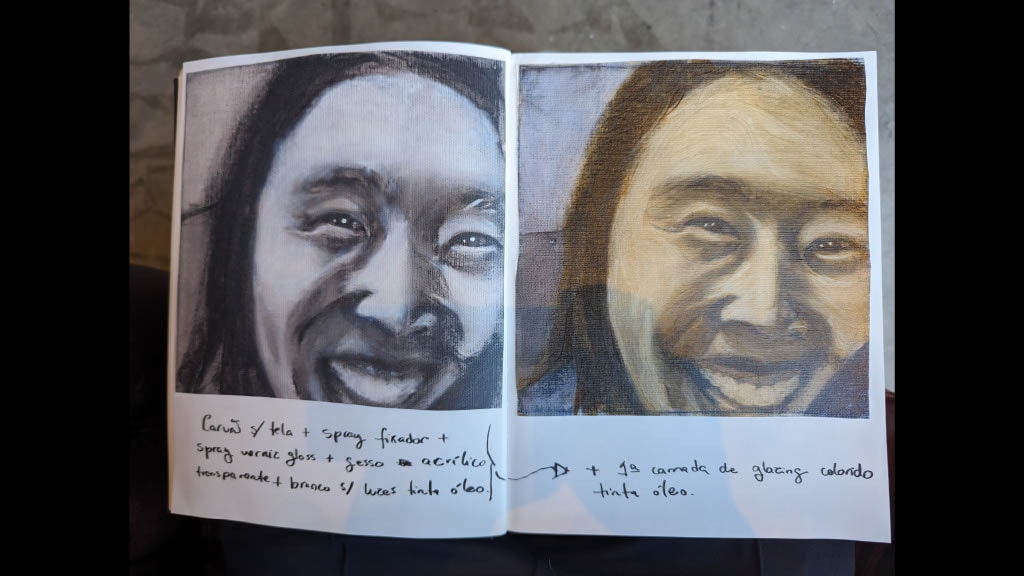 Carvã s/ tela + spray fixador +
spray verniz gloss + gesso acrílico
transparente + branco s/ luzes tinta óleo.
+ 1ª camada de glazing colorido
tinta óleo.